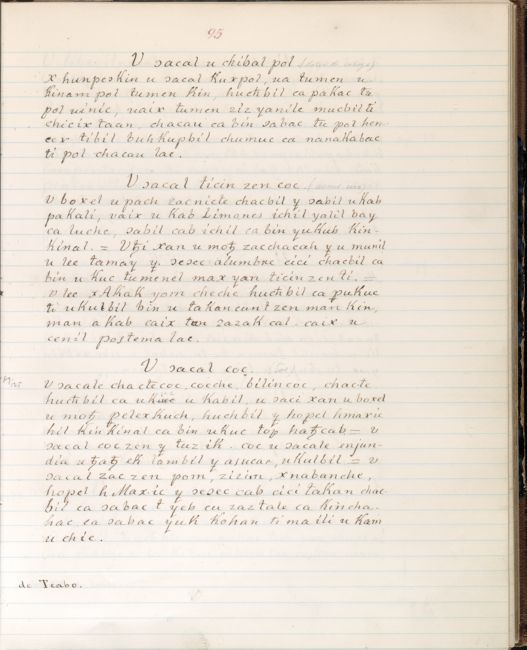 95
V sacal u chibal pol
x hunpeskin u sacal Kuxpol, ua tumen u
kinam pol tumen Kin, huchbil ca pakac tu
pol uinic, uaix tumen ziz yanile mucbilti
chicix taan, chacau ca bin sabac tu pol hen
cex tibil buhkupbil chumuc ca nanakabac
ti pol chacau lae.
V sacal ticin zen coc
v boxel u pach zacnicte chacbil y sabil u kab
pakali, uaix u kab Limones ichil yalil bay
ca luche, sabil cab ichil ca bin yukub kin-
kinal. = Vhi xan u moh zacchacah y u munil
u lee tamay y sesec alumbre cici chacbil ca
bin u kuc tumenel max yan ticin zen ti. =
v lee xAkak yom cheche huchbil ca pukuc
ti u Kulbil bin u takancunt zen man kin,
man akab caix tun zazak cal. caix u
cenil postema lae.
V sacal coc.
v sacale chactecoc, coeche, bilincoc, chacte
huchbil ca u kuce u Kabil, u saci xan u boxel
u moh pelexkuch, huchbil y hopel hmaxic
bil kinkinal ca bin ukuc top hahcab = v
sacal coc zen y tuz ik. coc u sacale injun-
dia u hah ek lambil y asucar, ukulbil = v
sacal zac zen pom, zizim, xnabanche,
hopel h Maxic y sesec cab cici takan chac
bil ca sabac t yeb cu zaztale ca kincha-
hac ca sabac yuk kohan ti maili u kam
u chie.
de Teabo.